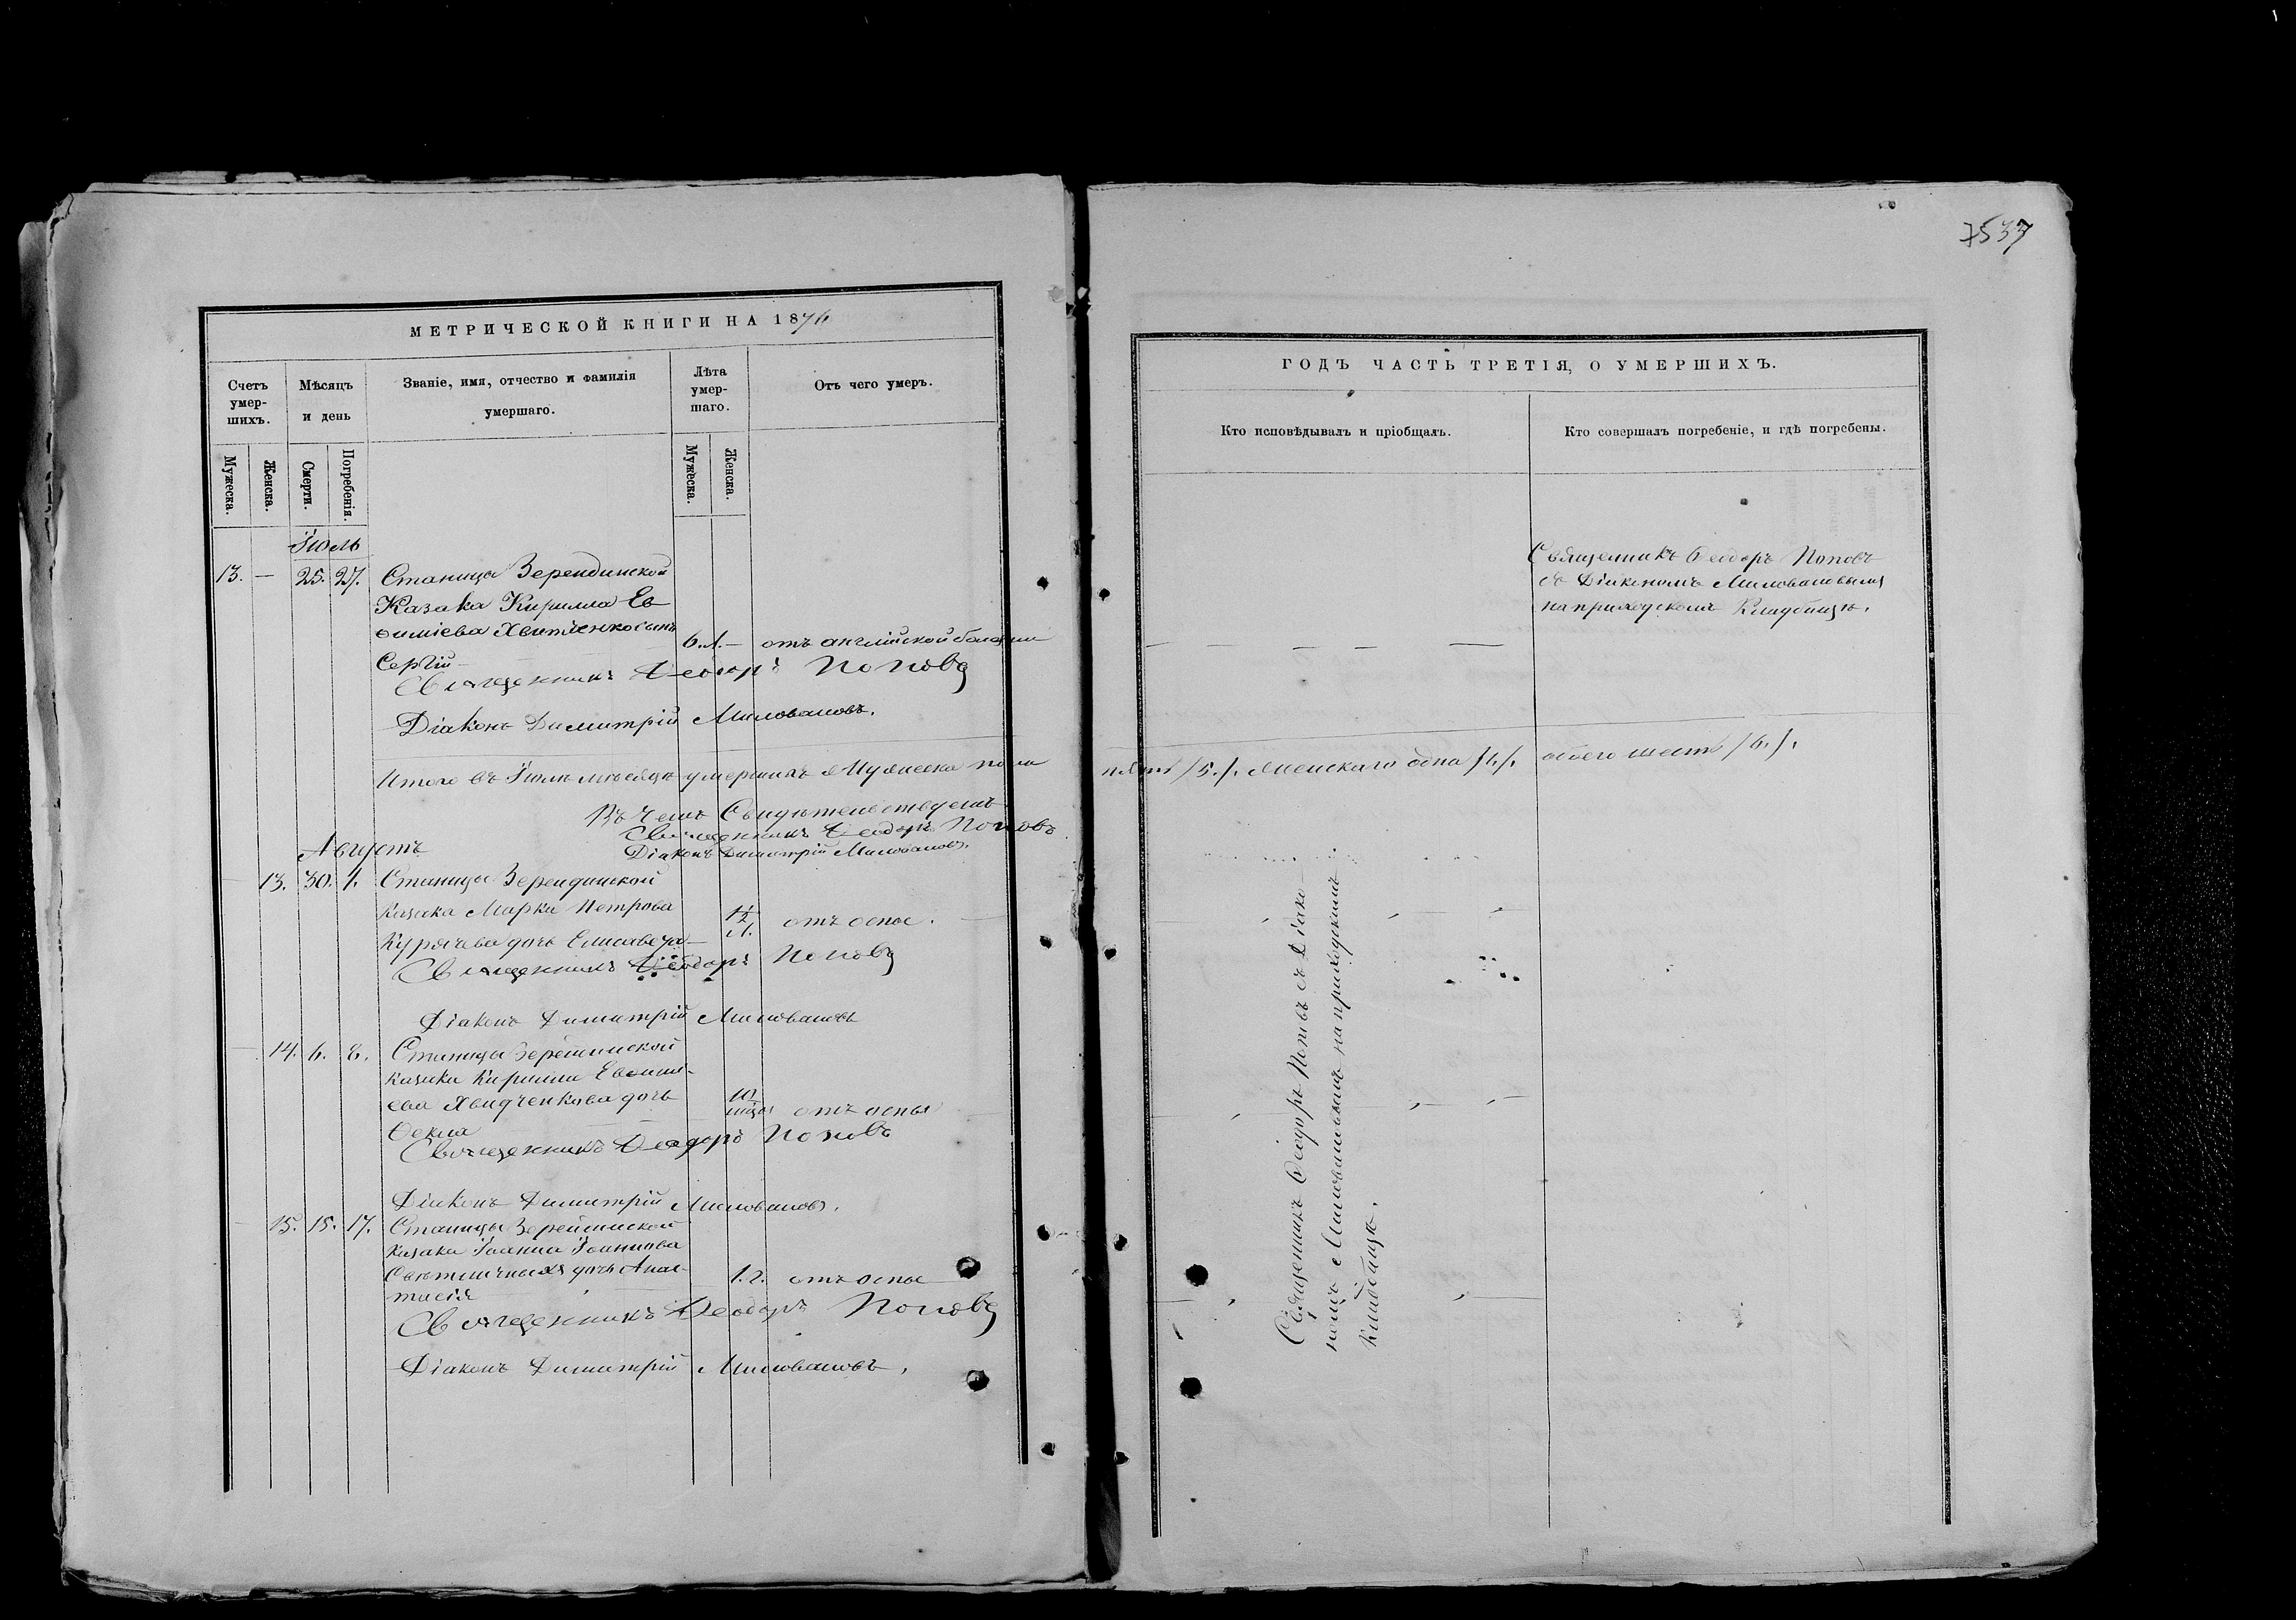 МЕТРИЧЕСКОЙ КНИГИ НА 1876
Счетъ умер-шихъ.
Мѣсяцъ и день
Званіе, имя, отчество и фамилія умершаго.
Лѣта умер-шаго.
Отъ чего умеръ.
Мужеска.
Женска.
Смерти.
Погребенія.
Мужеска.
Женска.
Іюль
13. — 25. 27. Станицы Зерендинской
Казака Кирилла Ев
ѳиміева сынъ
Сергій — 6. л. — отъ англійской болезни
Священникъ Ѳеодоръ Поповъ
Діаконъ Димитрій Миловановъ.
Итого въ Іюлѣ мѣсяцѣ умершихъ Мужеска пола
Въ чемъ Свидѣтельствуемъ
Священникъ Ѳеодоръ Поповъ
Діаконъ Димитрій Миловановъ.
Августъ
13. 30. 1. Станицы Зерендинской
Казака Марка Петрова
дочь Елисавета — 1/2 л. отъ оспы. —
Священникъ Ѳеодоръ Поповъ
Діаконъ Димитрій Миловановъ
— 14. 6. 8. Станицы Зерендинской
казака Кирилла Евѳими-
ева дочь
Ѳекла 10 отъ оспы
Священникъ Ѳеодоръ Поповъ
Діаконъ Димитрій Миловановъ.
15. 15. 17. Станицы Зерендинской
казака Іоанна Іоаннова
дочь Анас-
тасія 1. г. отъ оспы
Священникъ Ѳеодоръ Поповъ
Діаконъ Димитрій Миловановъ.
7537
ГОДЪ ЧАСТЬ ТРЕТІЯ, О УМЕРШИХЪ.
Кто исповѣдывалъ и пріобщалъ.
Кто совершалъ погребеніе, и гдѣ погребены.
Священникъ Ѳеодоръ Поповъ
съ Діакономъ Миловановымъ
на приходскомъ Кладбищѣ.
пять /5./. Женскаго одна /1./. обоего шесть /6./.
Священникъ Ѳеодоръ Поповъ съ Діако-
номъ Миловановымъ на приходскомъ
Кладбищѣ.